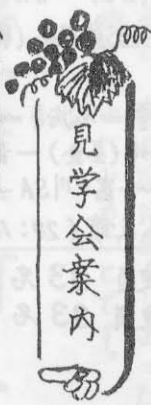 見学会案内